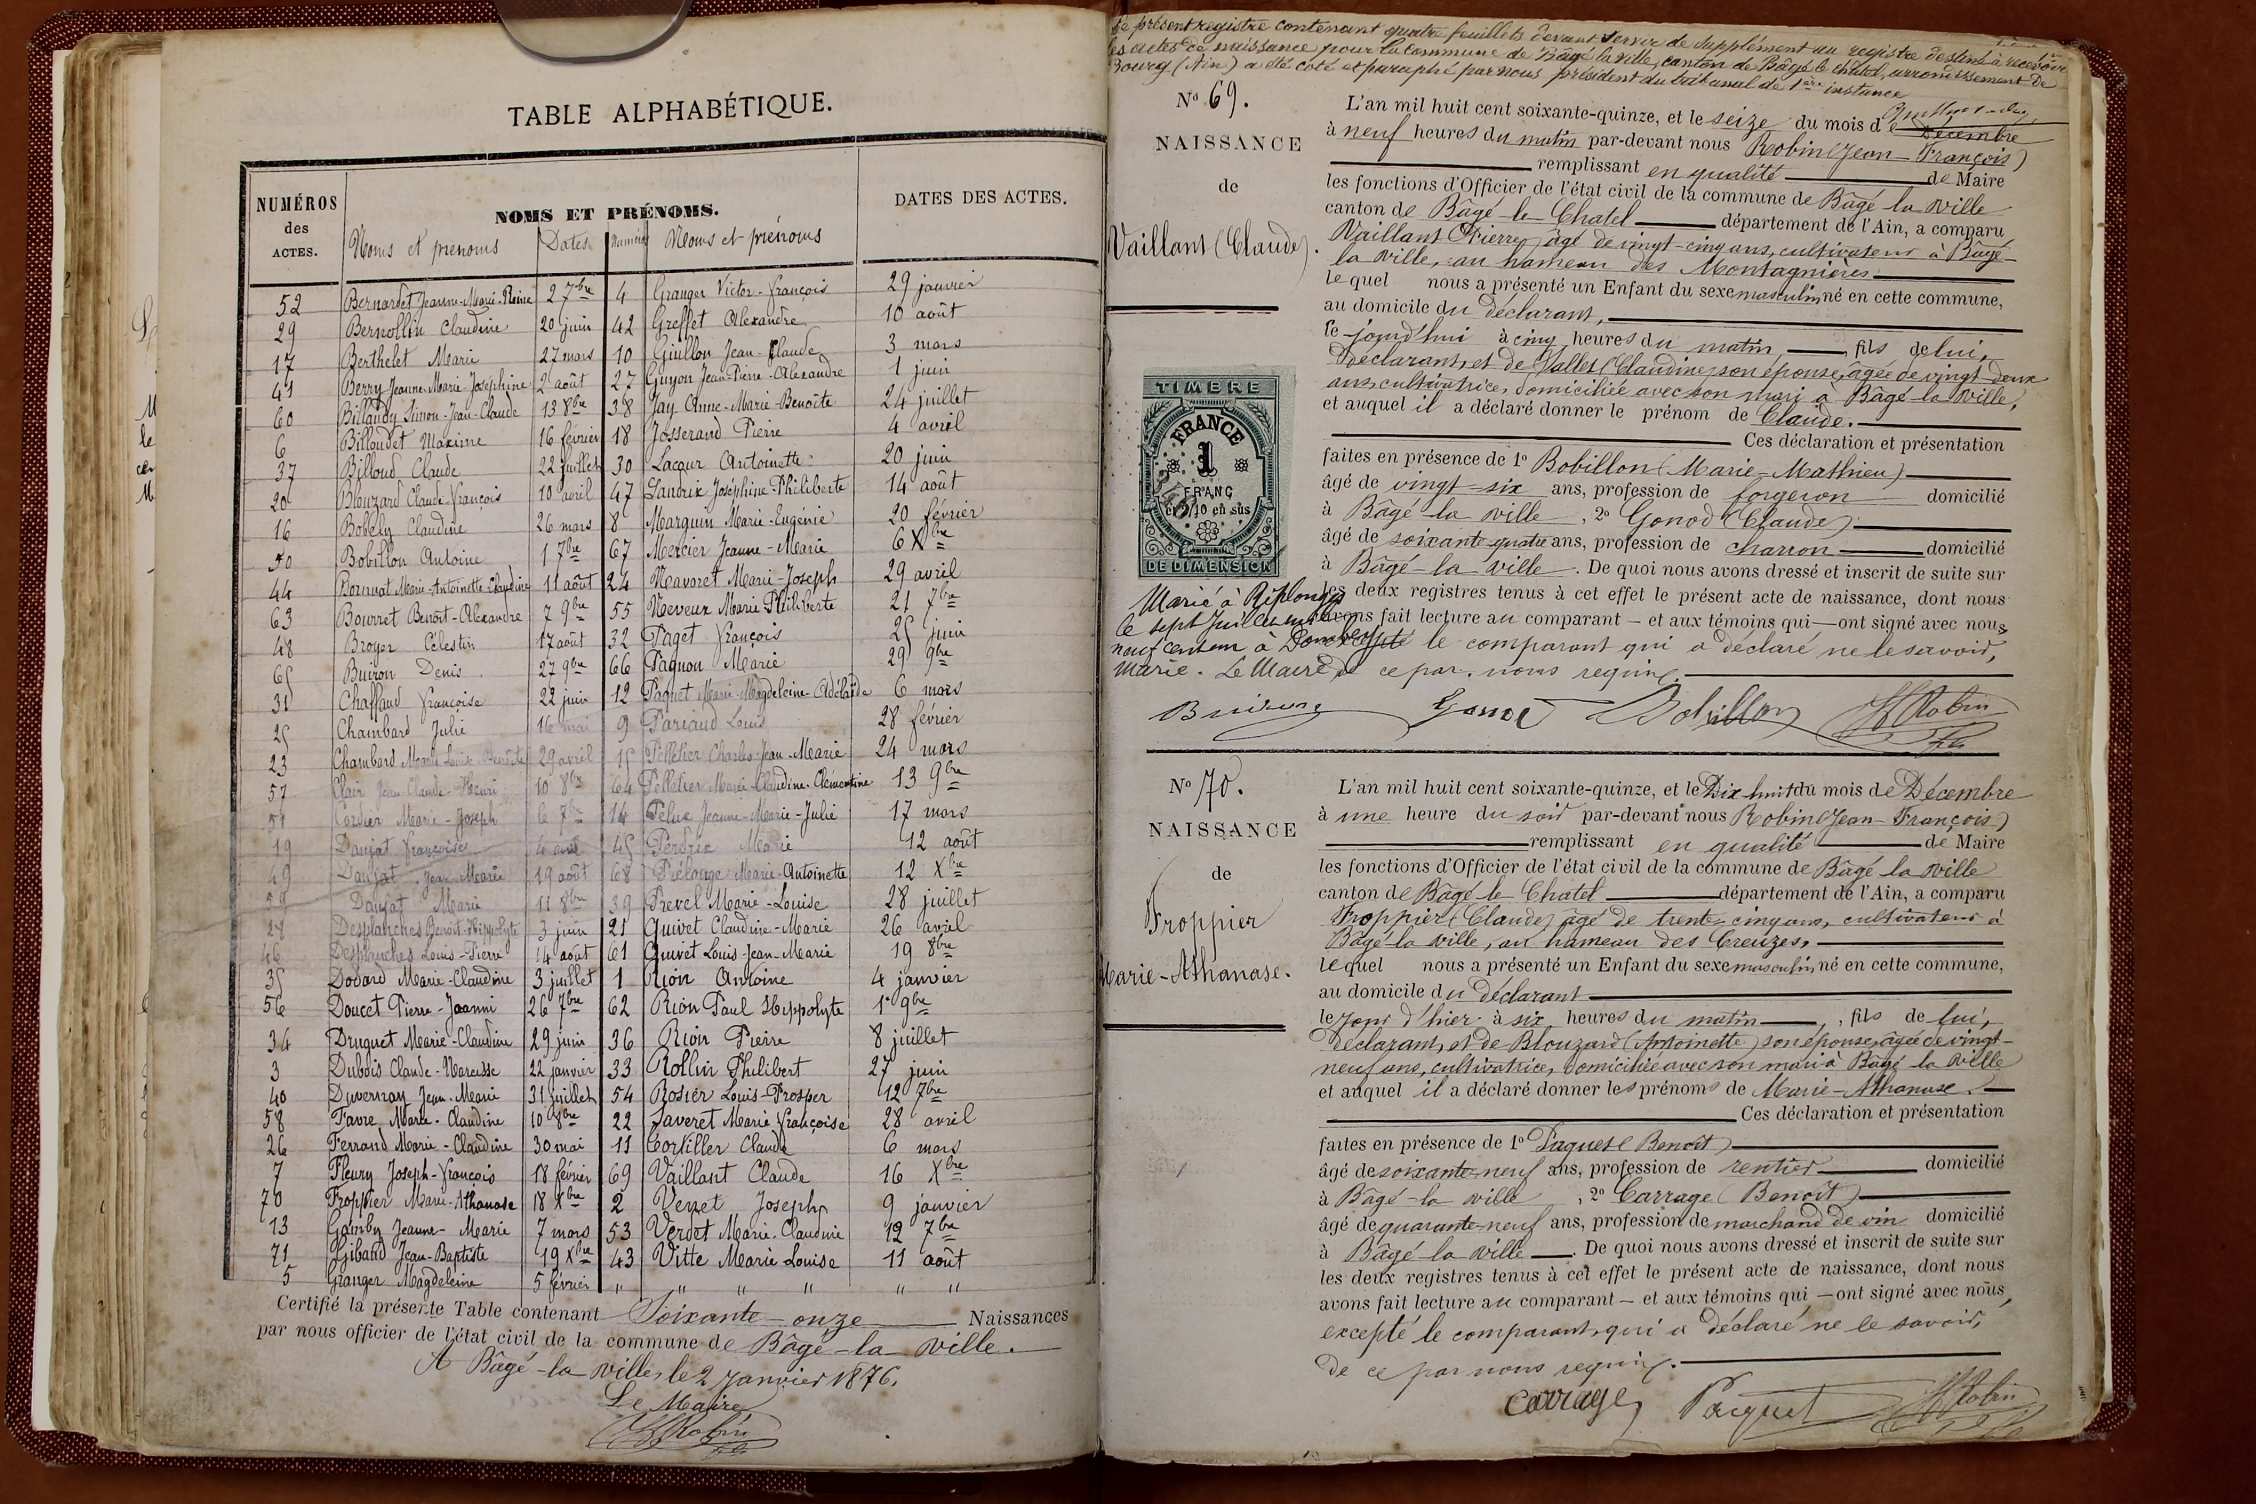 TABLE ALPHABÉTIQUE.
NUMÉROS des ACTES.
NOMS ET PRÉNOMS.
DATES DES ACTES.
Noms et prenoms Dates Numéros Noms et prénoms
52 Bernardet Jeanne-Marie-Reine 2 7bre 4 Granger Victor-françois 29 janvier
29 Bernollin Claudine 20 juin 42 Greffet Alexandre 10 août
17 Berthelet Marie 27 mars 10 Guillon Jean-Claude 3 mars
41 Berry Jeanne-Marie-Josephine 2 août 27 Guyon Jean-Pierre-Alexandre 1 juin
60 Billandy Simon-Jean-Claude 13 8bre 38 Jay Anne-Marie-Benoîte 24 juillet
6 Billoudet Maxime 16 février 18 Josserand Pierre 4 avril
37 Billoud Claude 22 juillet 30 Lacour Antoinette 20 juin
20 Blouzard Claude-françois 10 avril 47 Landrix Joséphine-Philiberte 14 août
16 Bobely Claudine 26 mars 8 Marquin Marie-Eugénie 20 février
50 Bobillon Antoine 1 7bre 67 Mercier Jeanne-Marie 6 Xbre
44 Marie-Antoinette-Claudine 11 août 24 Navoret Marie-Joseph 29 avril
63 Bourret Benoît-Alexandre 7 9bre 55 Neveux Marie Philiberte 21 7bre
48 Broyer Célestin 17 août 32 Paget françois 25 juin
65 Buiron Denis 27 9bre 66 Pagnon Marie 29 9bre
31 Chaffaud françoise 22 juin 12 Paquet Marie-Magdeleine-Adélaïde 6 mars
25 Chambard Julie 16 mai 9 Pariaud Louis 28 février
23 Chambard Marie Louise Benoîte 29 avril 15 Pelletier Charles-Jean-Marie 24 mars
57 Clair Jean-Claude-Henri 10 8bre 64 Pelletier Marie-Claudine-Clémentine 13 9bre
51 Cordier Marie-Joseph 6 7bre 14 Pelux Jeanne-Marie-Julie 17 mars
19 Danjat françoise 4 avril 45 Perdrix Marie 12 août
49 Danjat Jean-Marie 19 août 68 Prélonge Marie-Antoinette 12 Xbre
59 Danjat Marie 11 8bre 39 Prevel Marie-Louise 28 juillet
28 Desplanches Benoît-Hippolyte 3 juin 21 Quivet Claudine-Marie 26 avril
46 Desplanches Louis-Pierre 14 août 61 Quivet Louis-Jean-Marie 19 8bre
35 Dodard Marie-Claudine 3 juillet 1 Rion Antoine 4 janvier
56 Doucet Pierre-Joanni 26 7bre 62 Rion Paul Hippolyte 1er 9bre
34 Druguet Marie-Claudine 29 juin 36 Rion Pierre 8 juillet
3 Dubois Claude-Narcisse 22 janvier 33 Rollin Philibert 27 juin
40 Duvernay Jean-Marie 31 juillet 54 Rosier Louis-Prosper 12 7bre
58 Favre Marie-Claudine 10 8bre 22 Saveret Marie françoise 28 avril
26 Ferrand Marie-Claudine 30 mai 11 Tortiller Claude 6 mars
7 Fleury Joseph-françois 18 février 69 Vaillant Claude 16 Xbre
70 Froppier Marie-Athanase 18 Xbre 2 Verzet Joseph 9 janvier
13 Jeanne-Marie 7 mars 53 Verdet Marie-Claudine 12 7bre
71 Gibaud Jean-Baptiste 19 Xbre 43 Vitte Marie Louise 11 août
5 Granger Magdeleine 5 février " " " " " "
Certifié la présente Table contenant Soixante-onze Naissances
par nous officier de l'état civil de la commune de Bâgé-la-ville.
A Bâgé-la ville, le 2 janvier 1876.
Le Maire
JfRobin
Le présent registre contenant quatre feuillets devant servir de supplément au registre destiné à recevoir
les actes de naissance pour la commune de Bâgé la ville, canton de Bâgé le châtel, arrondissement de
Bourg (Ain) a été coté et paraphé par nous président du tribunal de 1ère instance
No 69.
NAISSANCE
de
Vaillant (Claude).
TIMBRE
FRANCE
1
FRANC
et 2/10 en sus
DE DIMENSION
Marié à Replonges
le sept Juin mil
neuf cent un à
Marie. Le Maire
L'an mil huit cent soixante-quinze, et le seize du mois de Décembre
à neuf heures du matin par-devant nous Robin (Jean-François)
remplissant en qualité de Maire
les fonctions d'Officier de l'état civil de la commune de Bâgé la ville
canton de Bâgé-le-Chatel département de l'Ain, a comparu
Vaillant (Pierre) âgé de vingt-cinq ans, cultivateur à Bâgé-
la ville, au hameau des Montagnières
lequel nous a présenté un Enfant du sexe masculin né en cette commune,
au domicile du déclarant,
ce-jourd'hui à cinq heures du matin, fils de lui,
déclarant, et de Vallet (Claudine) son épouse, âgée de vingt deux
ans, cultivatrice, domiciliée avec son mari à Bâgé-la ville,
et auquel il a déclaré donner le prénom de Claude.
Ces déclaration et présentation
faites en présence de 1o Bobillon (Marie-Mathieu)
âgé de vingt-six ans, profession de forgeron domicilié
à Bâgé-la ville, 2o Gonod (Claude)
âgé de soixante-quatre ans, profession de charron domicilié
à Bâgé-la ville. De quoi nous avons dressé et inscrit de suite sur
les deux registres tenus à cet effet le présent acte de naissance, dont nous
avons fait lecture au comparant — et aux témoins qui — ont signé avec nous,
excepté le comparant qui a déclaré ne le savoir,
de ce par nous requis.
Gonod Bobillon JfRobin
No 70.
NAISSANCE
de
Froppier
Marie-Athanase.
L'an mil huit cent soixante-quinze, et le Dix huit du mois de Décembre
à une heure du soir par-devant nous Robin (Jean-François)
remplissant en qualité de Maire
les fonctions d'Officier de l'état civil de la commune de Bâgé la ville
canton de Bâgé le Chatel département de l'Ain, a comparu
Froppier (Claude) âgé de trente-cinq ans, cultivateur à
Bâgé-la ville, au hameau des Creuzes,
lequel nous a présenté un Enfant du sexe masculin né en cette commune,
au domicile du déclarant
le jour d'hier à six heures du matin, fils de lui,
déclarant, et de Blouzard (Antoinette) son épouse, âgée de vingt-
neuf ans, cultivatrice, domiciliée avec son mari à Bâgé la ville
et auquel il a déclaré donner les prénoms de Marie-Athanase.
Ces déclaration et présentation
faites en présence de 1o Paquet (Benoît)
âgé de soixante-neuf ans, profession de rentier domicilié
à Bâgé-la ville, 2o Carrage (Benoît)
âgé de quarante-neuf ans, profession de marchand de vin domicilié
à Bâgé-la ville. De quoi nous avons dressé et inscrit de suite sur
les deux registres tenus à cet effet le présent acte de naissance, dont nous
avons fait lecture au comparant — et aux témoins qui — ont signé avec nous,
excepté le comparant, qui a déclaré ne le savoir,
de ce par nous requis.
Carrage Pacquet JfRobin